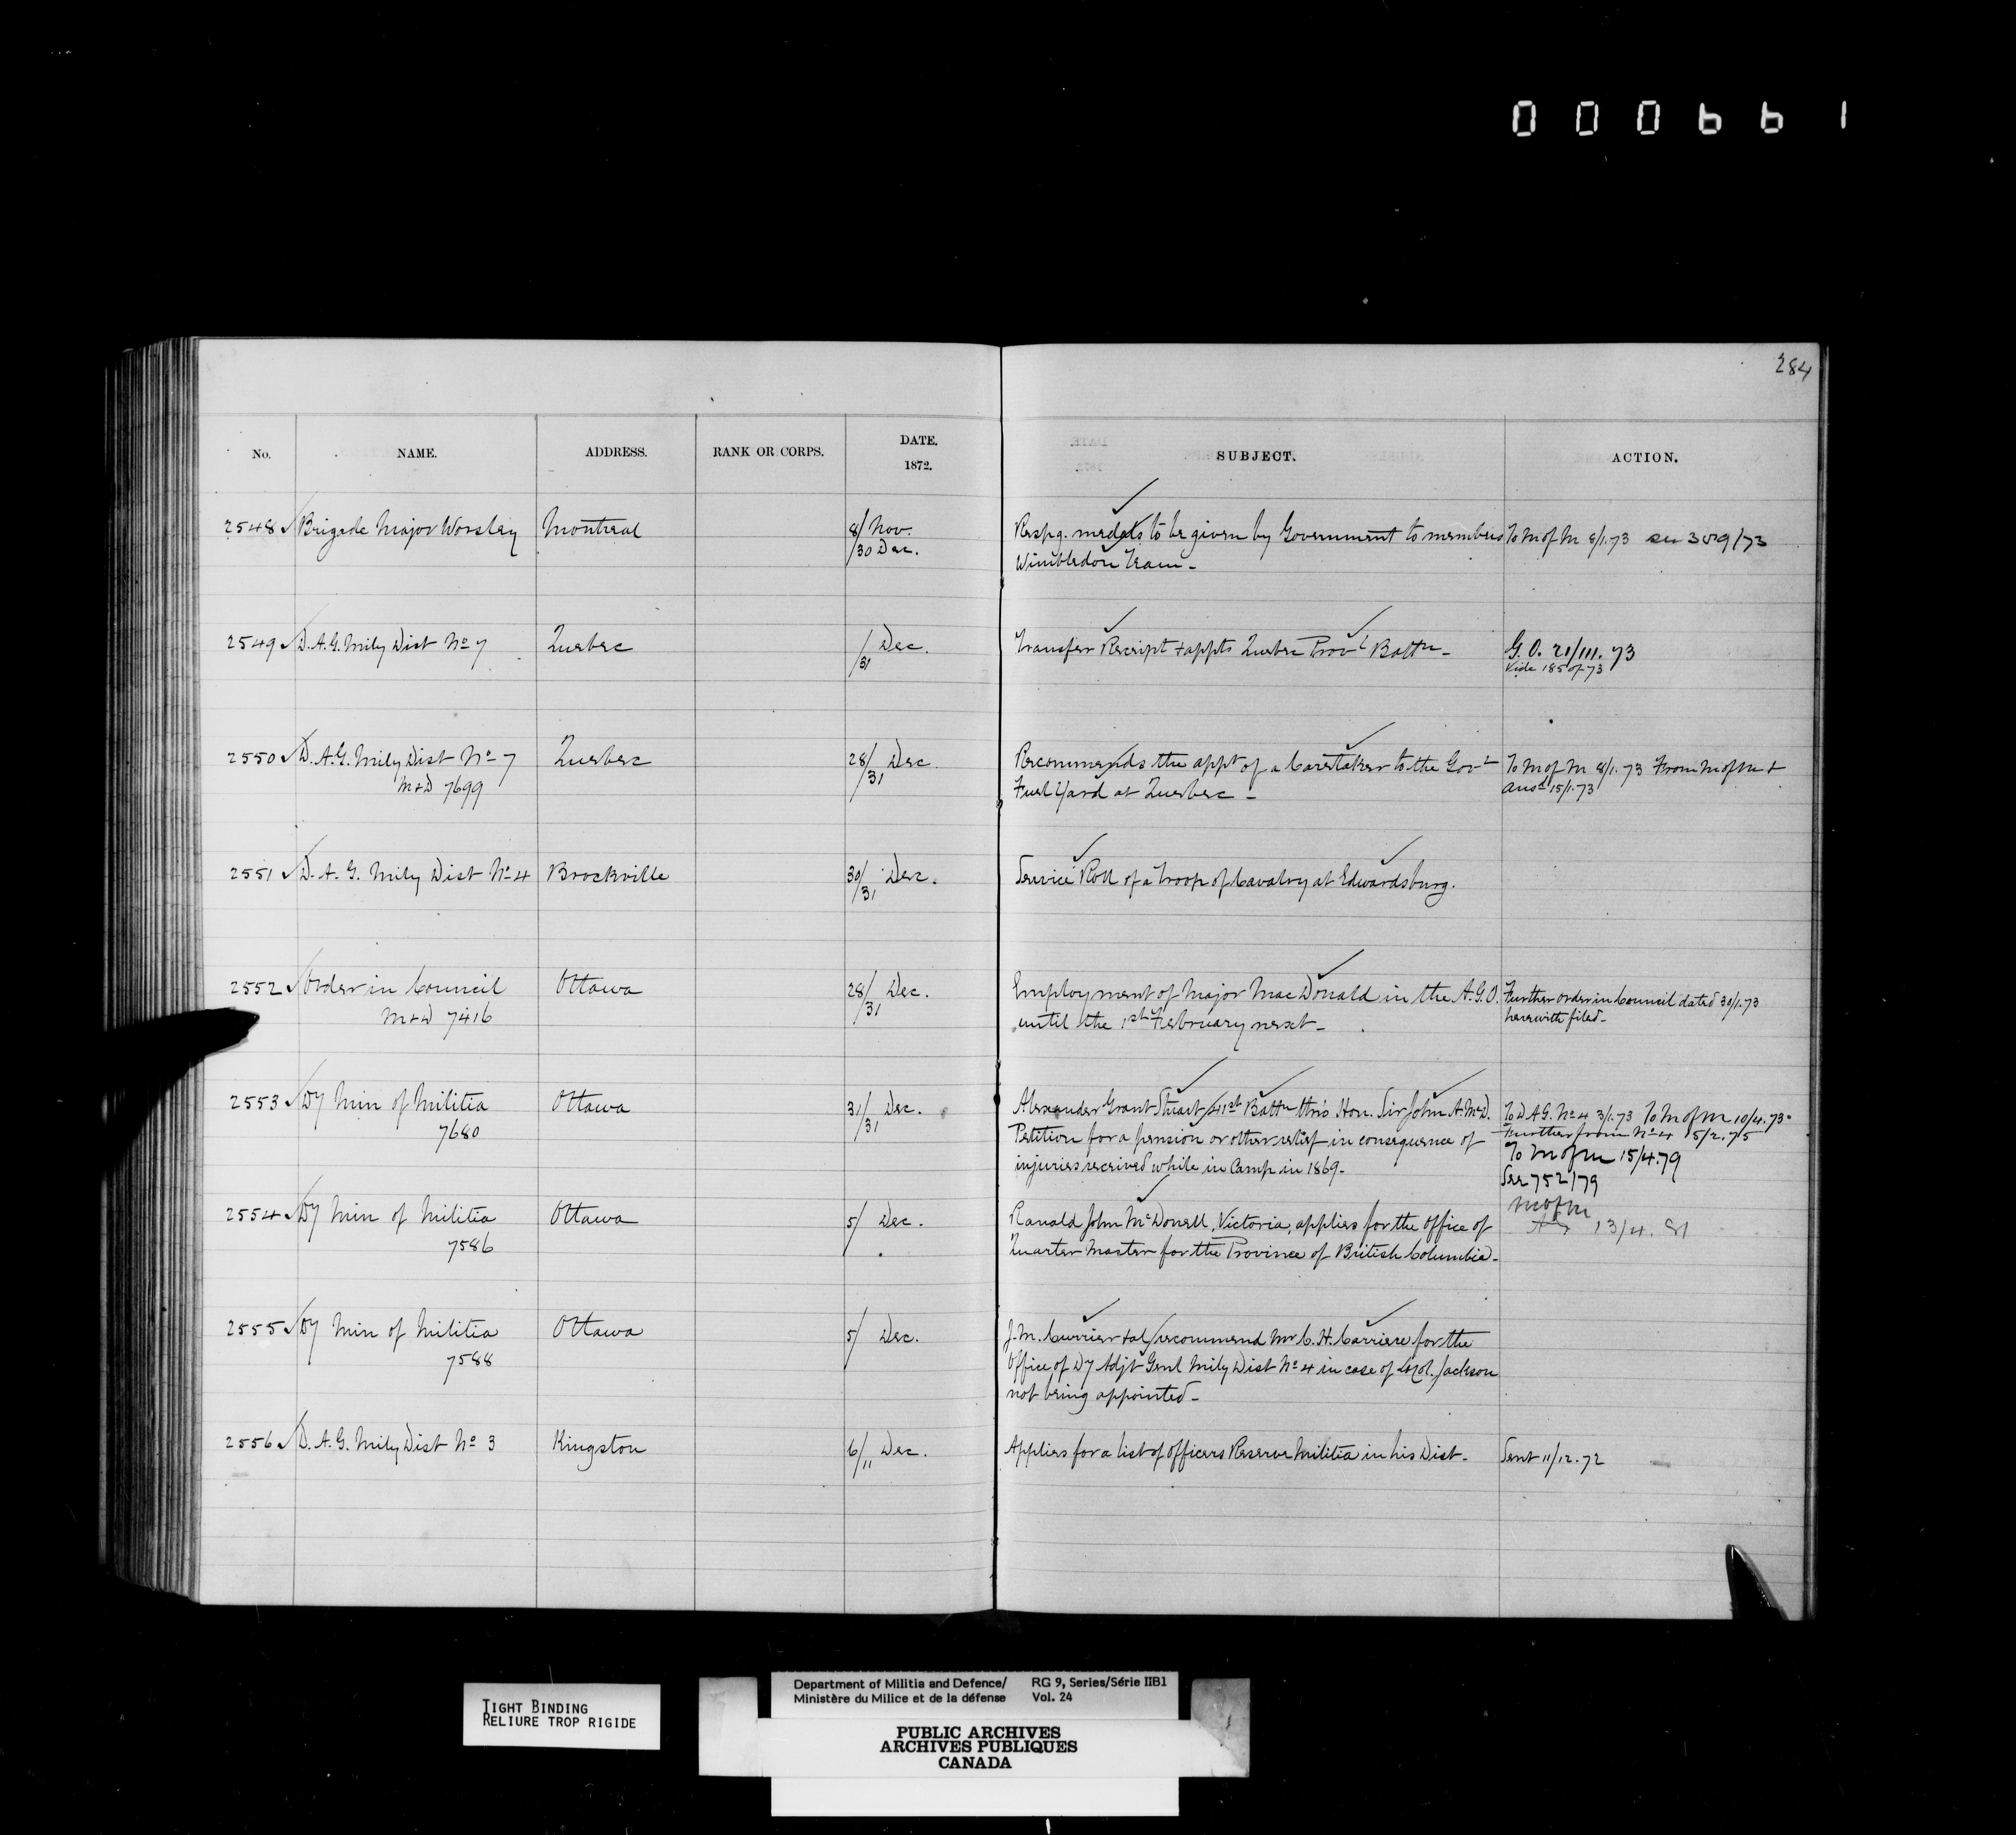 000661
284
No. NAME. ADDRESS. RANK OR CORPS. DATE. 1872. SUBJECT. ACTION.
2548 Brigade Major Worsley Montreal 8/30 Nov. Dec. Respg. medals to be given by Government to members To M of M 8/1.73 see 3059/73
Wimbledon Team -
2549 D.A.G. Mily Dist No 7 Quebec /31 Dec. Transfer Receipt + appts Quebec Provl Battn - G.O. 21/III.73
Vide 185 of 73
2550 D.A.G. Mily Dist No 7 Quebec 28/31 Dec Recommends the appt of a Caretaker to the Govt To M of M 8/1.73 From M of M +
M+D 7699 Fuel Yard at Quebec - ansd 15/1.73
2551 D.A.G. Mily Dist No 4 Brockville 30/31 Dec. Service Roll of a Troop of Cavalry at Edwardsburg.
2552 Order in Council Ottawa 28/31 Dec. Employment of Major MacDonald in the A.G.O. Further order in Council dated 30/1.73
M+D 7416 until the 1st February next - herewith filed -
2553 Dy Min of Militia Ottawa 31/31 Dec. Alexander Grant Stuart 41st Battn thro Hon. Sir John A. McD. To D.A.G. No 4 3/1.73 To M of M 10/4.73.
7680 Petition for a pension or other relief in consequence of Further from No 4 5/2.75
injuries received while in Camp in 1869 - To M of M 15/4.79
See 752/79
M of M
13/4.81
2554 Dy Min of Militia Ottawa 5/ Dec. Ranald John McDonell, Victoria, applies for the office of
7586 Quarter Master for the Province of British Columbia -
2555 Dy Min of Militia Ottawa 5/ Dec. J.M. Currier + al recommend Mr C.H. Carriere for the
7588 Office of Dy Adjt Genl Mily Dist No 4 in case of Lt Col. Jackson
not being appointed -
2556 D.A.G. Mily Dist No 3 Kingston 6/11 Dec. Applies for a list of officers Reserve Militia in his Dist - Sent 11/12.72
TIGHT BINDING
RELIURE TROP RIGIDE
Department of Militia and Defence/ RG 9, Series/Série IIB1
Ministère du Milice et de la défense Vol. 24
PUBLIC ARCHIVES
ARCHIVES PUBLIQUES
CANADA